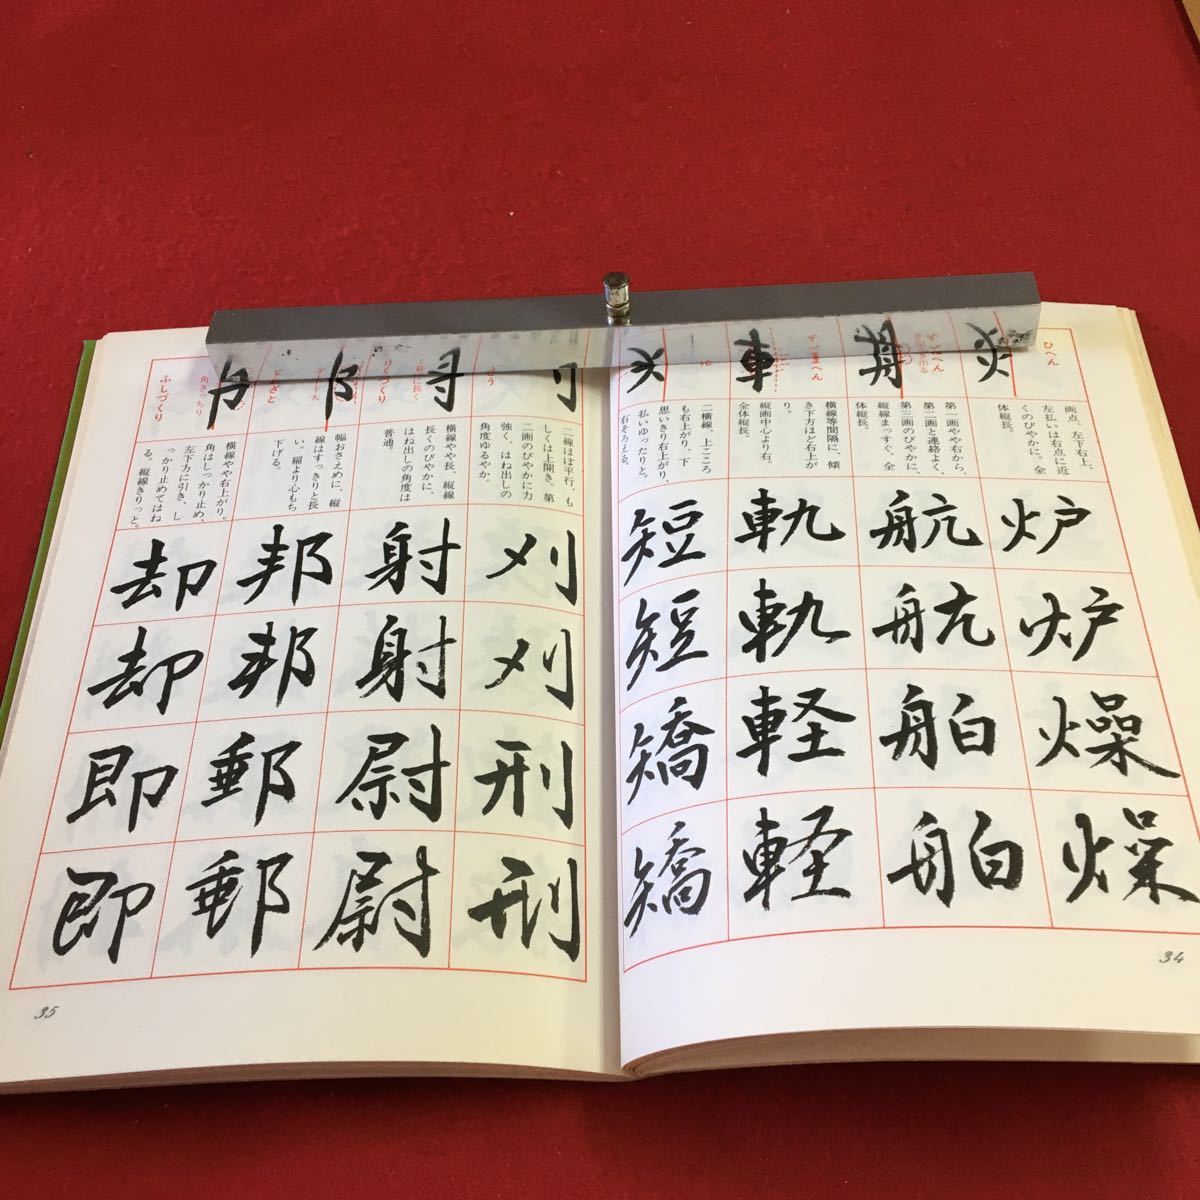 ひへん
両点、左下右上、
左払いは右点に近
くのびやかに。全
体縦長。
炉
炉
燥
燥
第一画やや右から、
第二画と連絡よく、
第三画のびやかに、
縦線まっすぐ。全
体縦長。
航
航
舶
舶
車
横線等間隔に、傾
き下方ほど右上が
り。
縦画中心より右。
全体縦長。
軌
軌
軽
軽
二横線、上こころ
も右上がり、下
思いきり右上がり、
払いゆったりと。
右そろえる。
短
短
矯
矯
二線ほぼ平行、も
しくは上開き。第
二画のびやかに力
強く、はね出しの
角度ゆるやか。
刈
刈
刑
刑
寸
横線やや長、縦線
長くのびやかに、
はね出しの角度は
普通
射
射
尉
尉
阝
幅おさえめに、縦
線はすっきりと長
い。扁より心もち
下げる。
邦
邦
郵
郵
卩
角きっちり
ふしづくり
横線やや右上がり。
角はしっかり止め、
左下方に引き、し
っかり止めてはね
る。縦線きりっと。
却
却
即
即
34
35